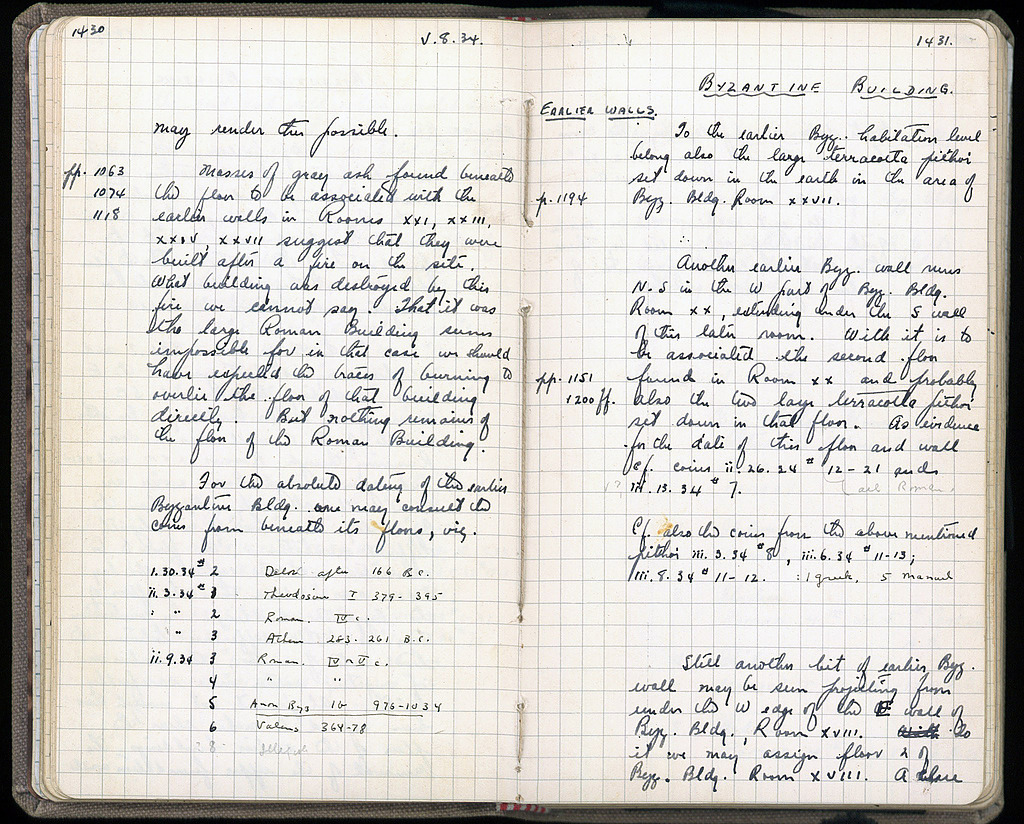 1430
V.8.34.
may render this possible.
pp. 1063 Masses of gray ash found beneath
1074 the floor to be associated with the
1118 earlier walls in Rooms XXI, XXIII,
XXIV, XXVII suggest that they were
built after a fire on the site.
What building was destroyed by this
fire we cannot say. That it was
the large Roman Building seems
impossible for in that case we should
have expected the traces of burning to
overlie the floor of that building
directly. But nothing remains of
the floor of the Roman Building.
For the absolute dating of the earlier
Byzantine Bldg. one may consult the
coins from beneath its floors, viz.
1.30.34 # 2 Delos after 166 B.C.
ii.3.34 # 1 Theodosius I 379-395
: " 2 Roman. IV c.
" 3 Athens 283-261 B.C.
ii.9.34 3 Roman. IV-V c.
4 " "
5 Anon Byz 976-1034
6 Valens 364-78
? 8
1431.
BYZANTINE BUILDING.
EARLIER WALLS.
To the earlier Byz. habitation level
belong also the large terracotta pithoi
set down in the earth in the area of
p. 1194 Byz. Bldg. Room XXVII.
Another earlier Byz. wall runs
N-S in the W part of Byz. Bldg.
Room XX, extending under the S wall
of this later room. With it is to
be associated the second floor
pp. 1151 found in Room XX and probably
1200ff. also the two large terracotta pithoi
set down in that floor. As evidence
for the date of this floor and wall
cf. coins ii.26.34 # 12-21 and
iii.13.34 # 7.
Cf. also the coins from the above mentioned
pithoi iii.3.34 # 8, iii.6.34 # 11-13;
iii.8.34 # 11-12. : 1 greek, 5
Still another bit of earlier Byz.
wall may be seen projecting from
under the W edge of the E wall of
Byz. Bldg., Room XVIII. With To
it we may assign floor 2 of
Byz. Bldg. Room XVIII. A